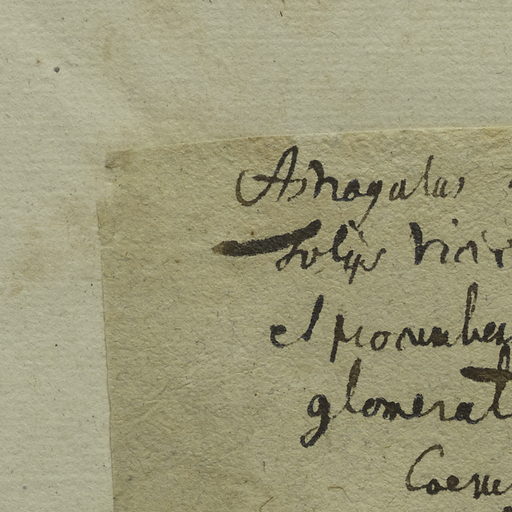 Astragalus
folijs vici
et procumben
glomerat
Coeru